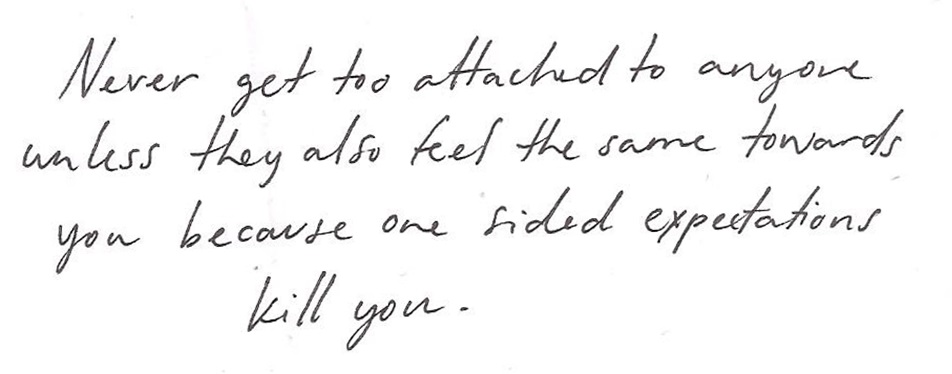 Never get too attached to anyone
unless they also feel the same towards
you because one sided expectations
kill you.